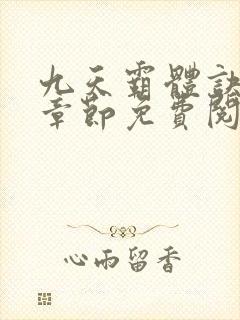 九天霸體訣
章節免費閱
心雨留香